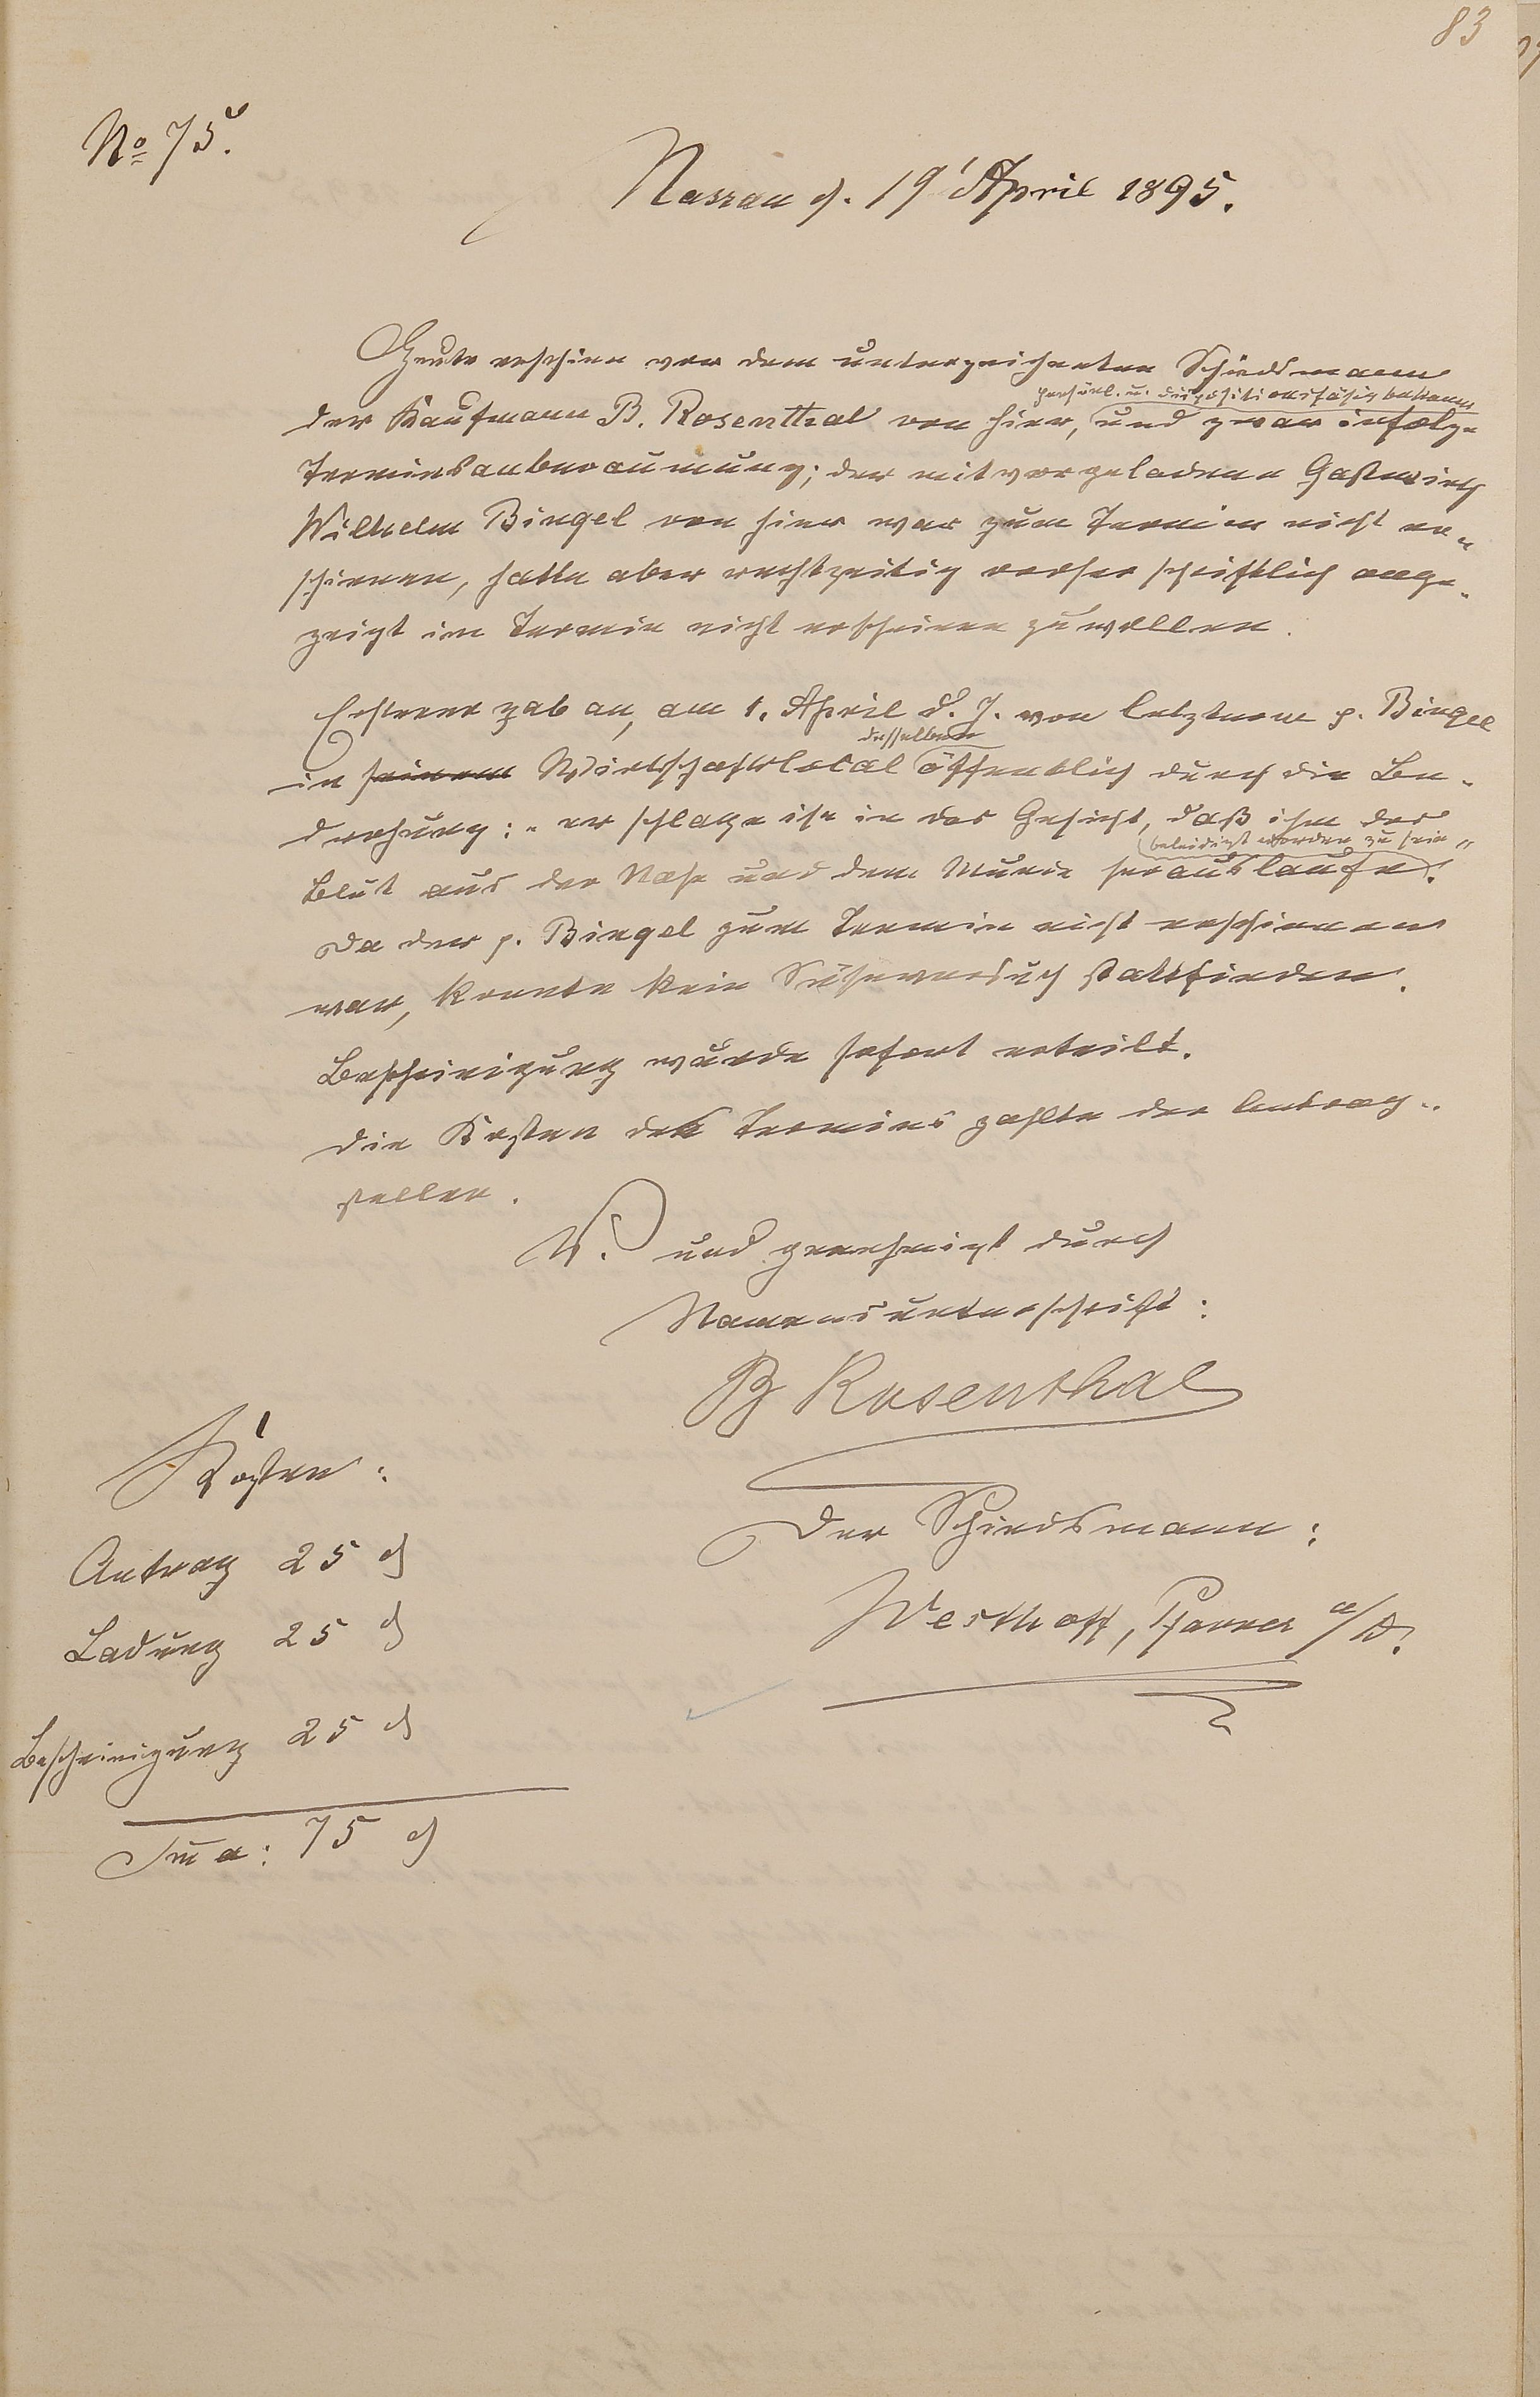 83
No 75.
Nassau d. 19' April 1895.
Heute erschien vor dem unterzeichneten Schiedsmann
persönl. u. dispositionsfähig bekannt
der Kaufmann B. Rosenthal von hier, und zwar infolge
Terminsanberaumung; der mitvorgeladene Gastwirth
Wilhelm Bingel von hier war zum Termin nicht er-
schienen, hatte aber rechtzeitig vorher schriftlich ange-
zeigt im Termin nicht erscheinen zu wollen.
Ersterer gab an, am 1. April d. J. von letzterem p. Bingel
desselben
in seinem Wirtschaftslocal öffentlich durch die Be-
drohung: „er schlage ihn in das Gesicht, daß ihm das
beleidigt worden zu sein"
Blut aus der Nase und dem Munde herauslaufe.
Da der p. Bingel zum Termin nicht erschienen
war, konnte kein Sühneversuch stattfinden.
Bescheinigung wurde sofort erteilt.
Die Kosten des Termins zahlte der Antrag-
steller.
V. und genehmigt durch
Namensunterschrift:
B Rosenthal
Der Schiedsmann:
Westhoff, Pfarrer a/D.
Kosten:
Antrag 25 ₰
Ladung 25 ₰
Bescheinigung 25 ₰
Sm̄a: 75 ₰